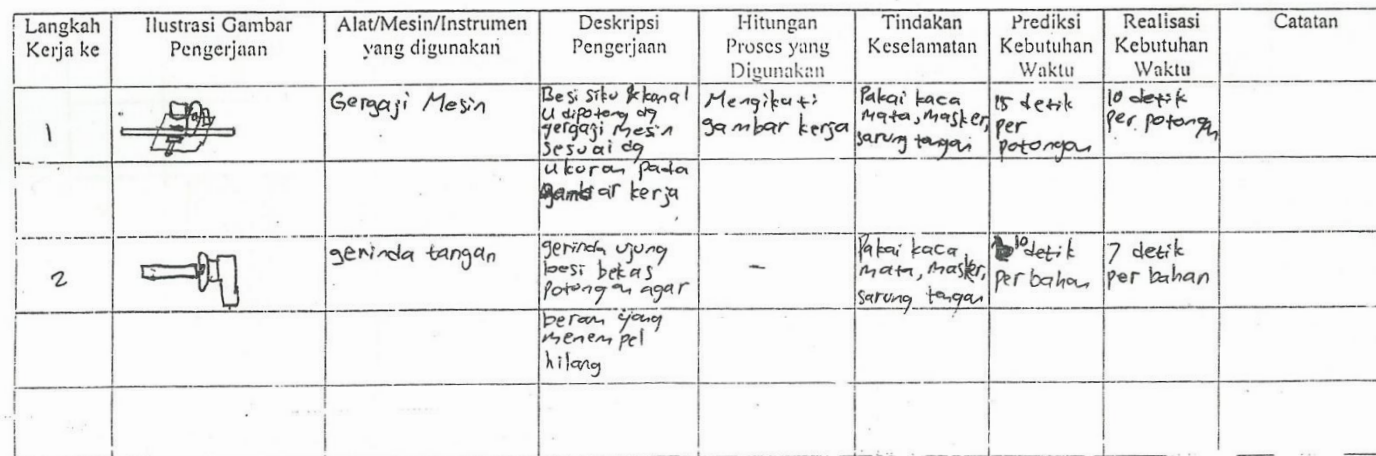 Langkah Kerja ke
Ilustrasi Gambar Pengerjaan
Alat/Mesin/Instrumen yang digunakan
Deskripsi Pengerjaan
Hitungan Proses yang Digunakan
Tindakan Keselamatan
Prediksi Kebutuhan Waktu
Realisasi Kebutuhan Waktu
Catatan
1
Gergaji Mesin
Besi siku & kanal
U dipotong dg
gergaji mesin
sesuai dg
ukuran pada
gambar kerja
Mengikuti
gambar kerja
Pakai kaca
mata, masker,
sarung tangan
15 detik
per
potongan
10 detik
per potongan
2
gerinda tangan
gerinda ujung
besi bekas
potongan agar
beram yang
menempel
hilang
-
Pakai kaca
mata, masker,
sarung tangan
10 detik
per bahan
7 detik
per bahan